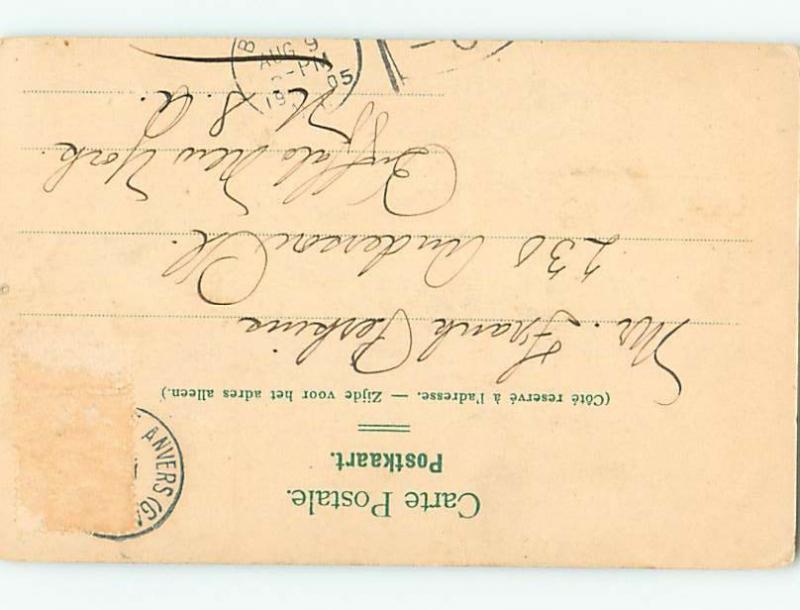 Carte Postale.
Postkaart.
(Côté reservé à l'adresse. — Zijde voor het adres alleen.)
ANVERS (GA
Mr. Frank Perkins
230 Anderson Pl.
Buffalo New York.
U. S. A.
B
AUG 9
-PM
1905